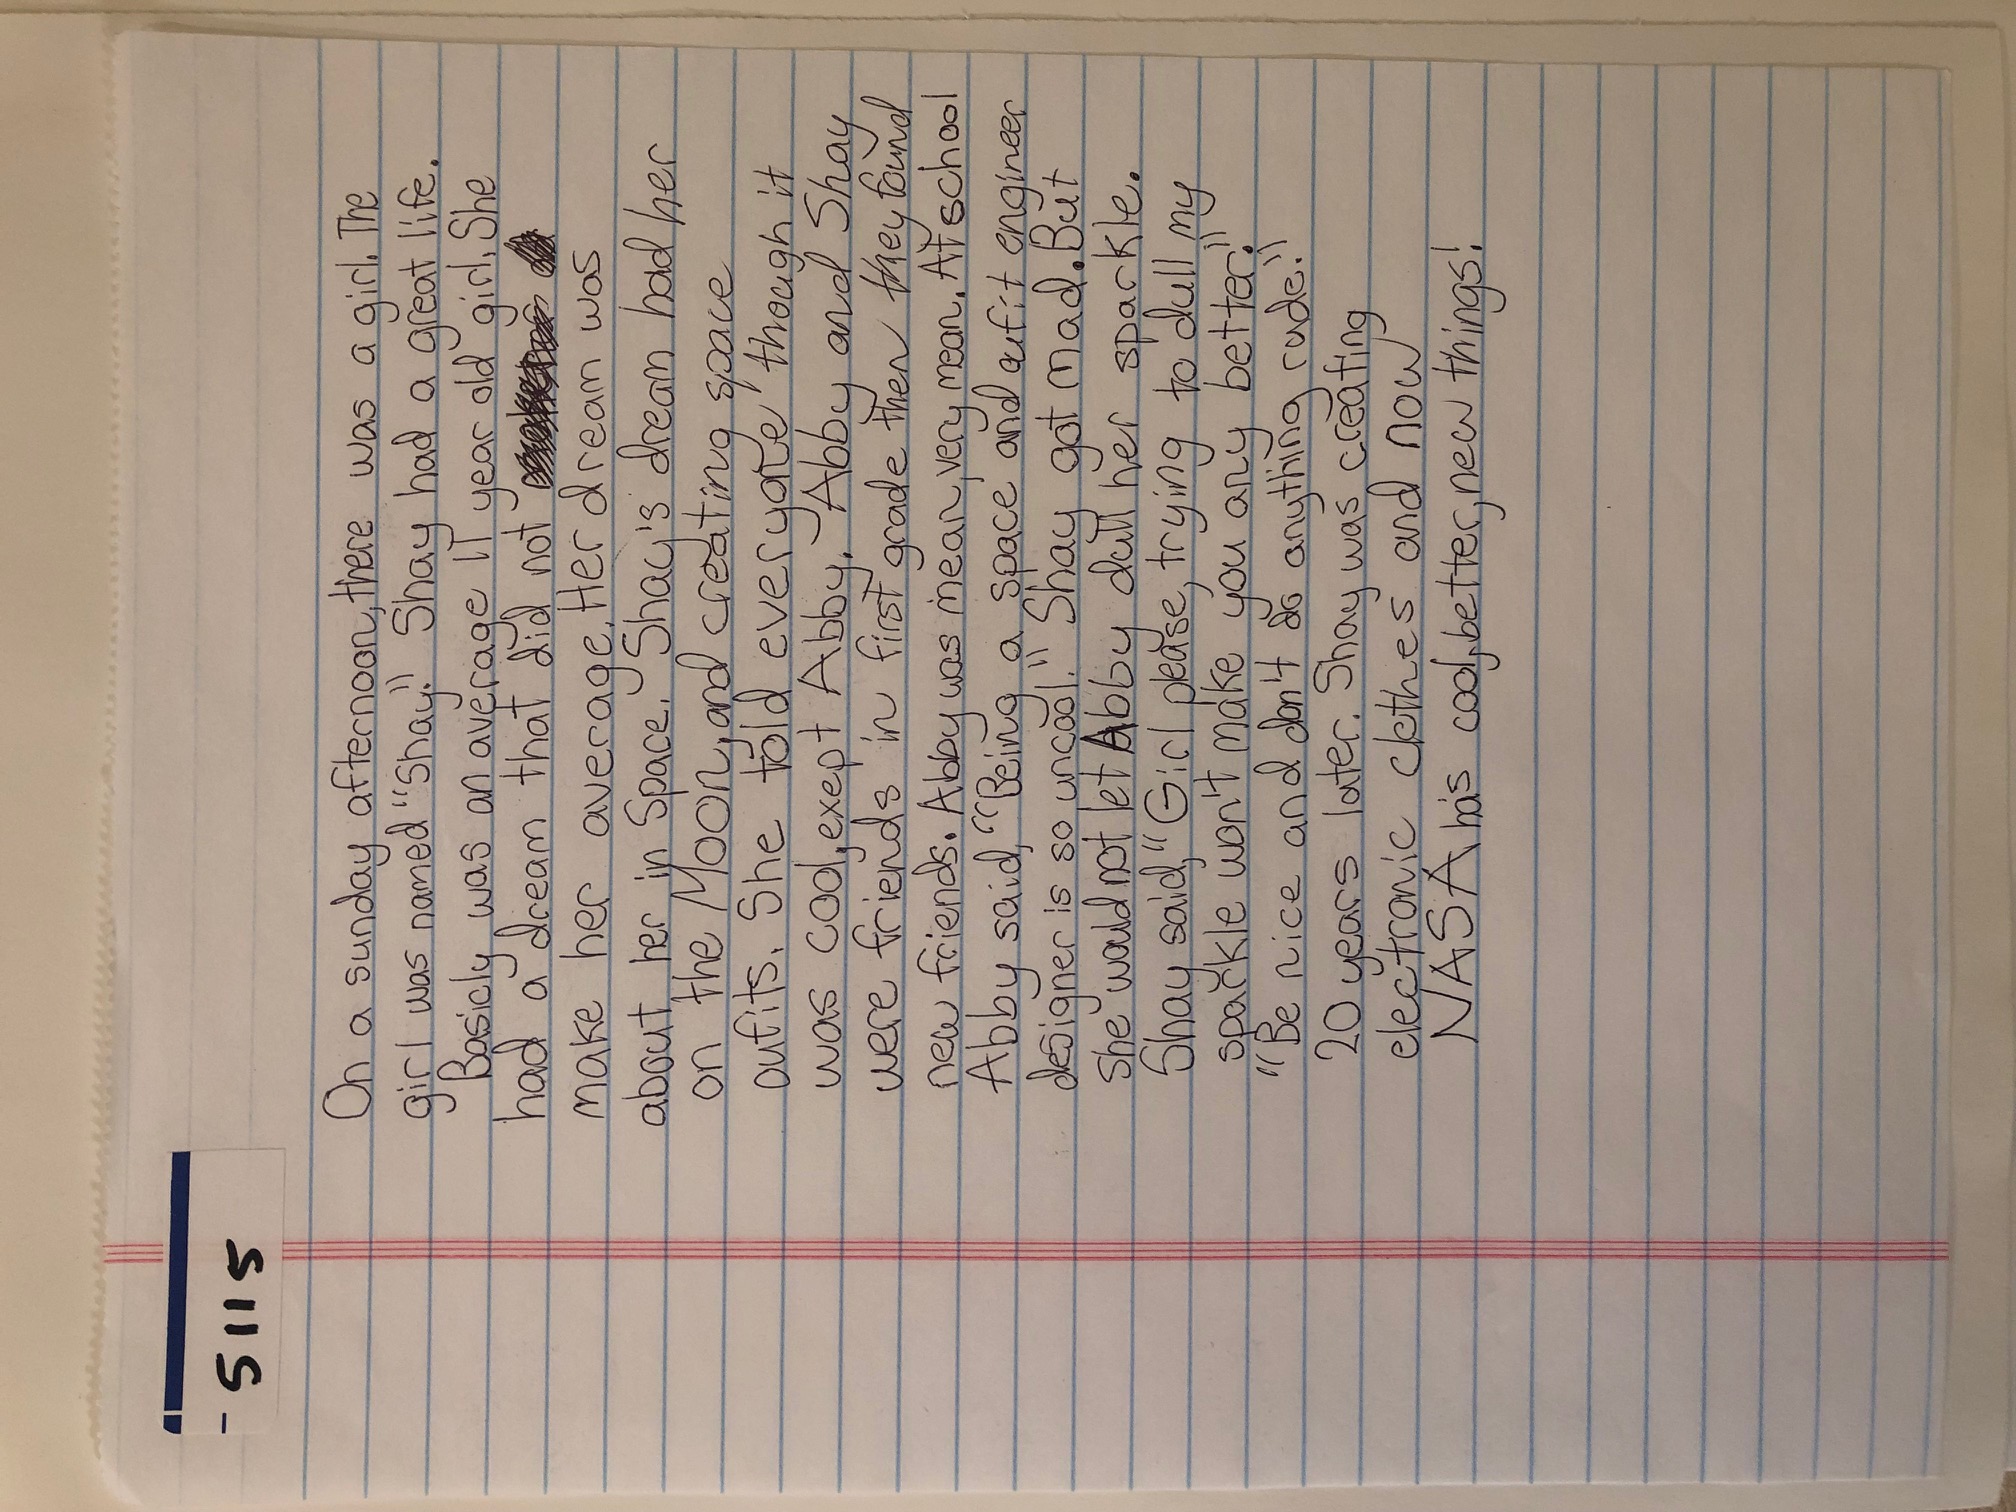 5115
On a sunday afternoon, there was a girl. The
girl was named "Shay." Shay had a great life.
Basicly was an average 11 year old girl. She
had a dream that did not
make her average. Her dream was
about her in Space. Shay's dream had her
on the Moon, and creating space
outfits. She told everyone though it
was cool, exept Abby. Abby and Shay
were friends in first grade then they found
new friends. Abby was mean, very mean. At school
Abby said, "Being a space and outfit engineer
designer is so uncool." Shay got mad. But
she would not let Abby dull her sparkle.
Shay said, "Girl please, trying to dull my
sparkle won't make you any better."
"Be nice and don't do anything rude."
20 years later. Shay was creating
electronic clothes and now
NASA has cool, better, new things!